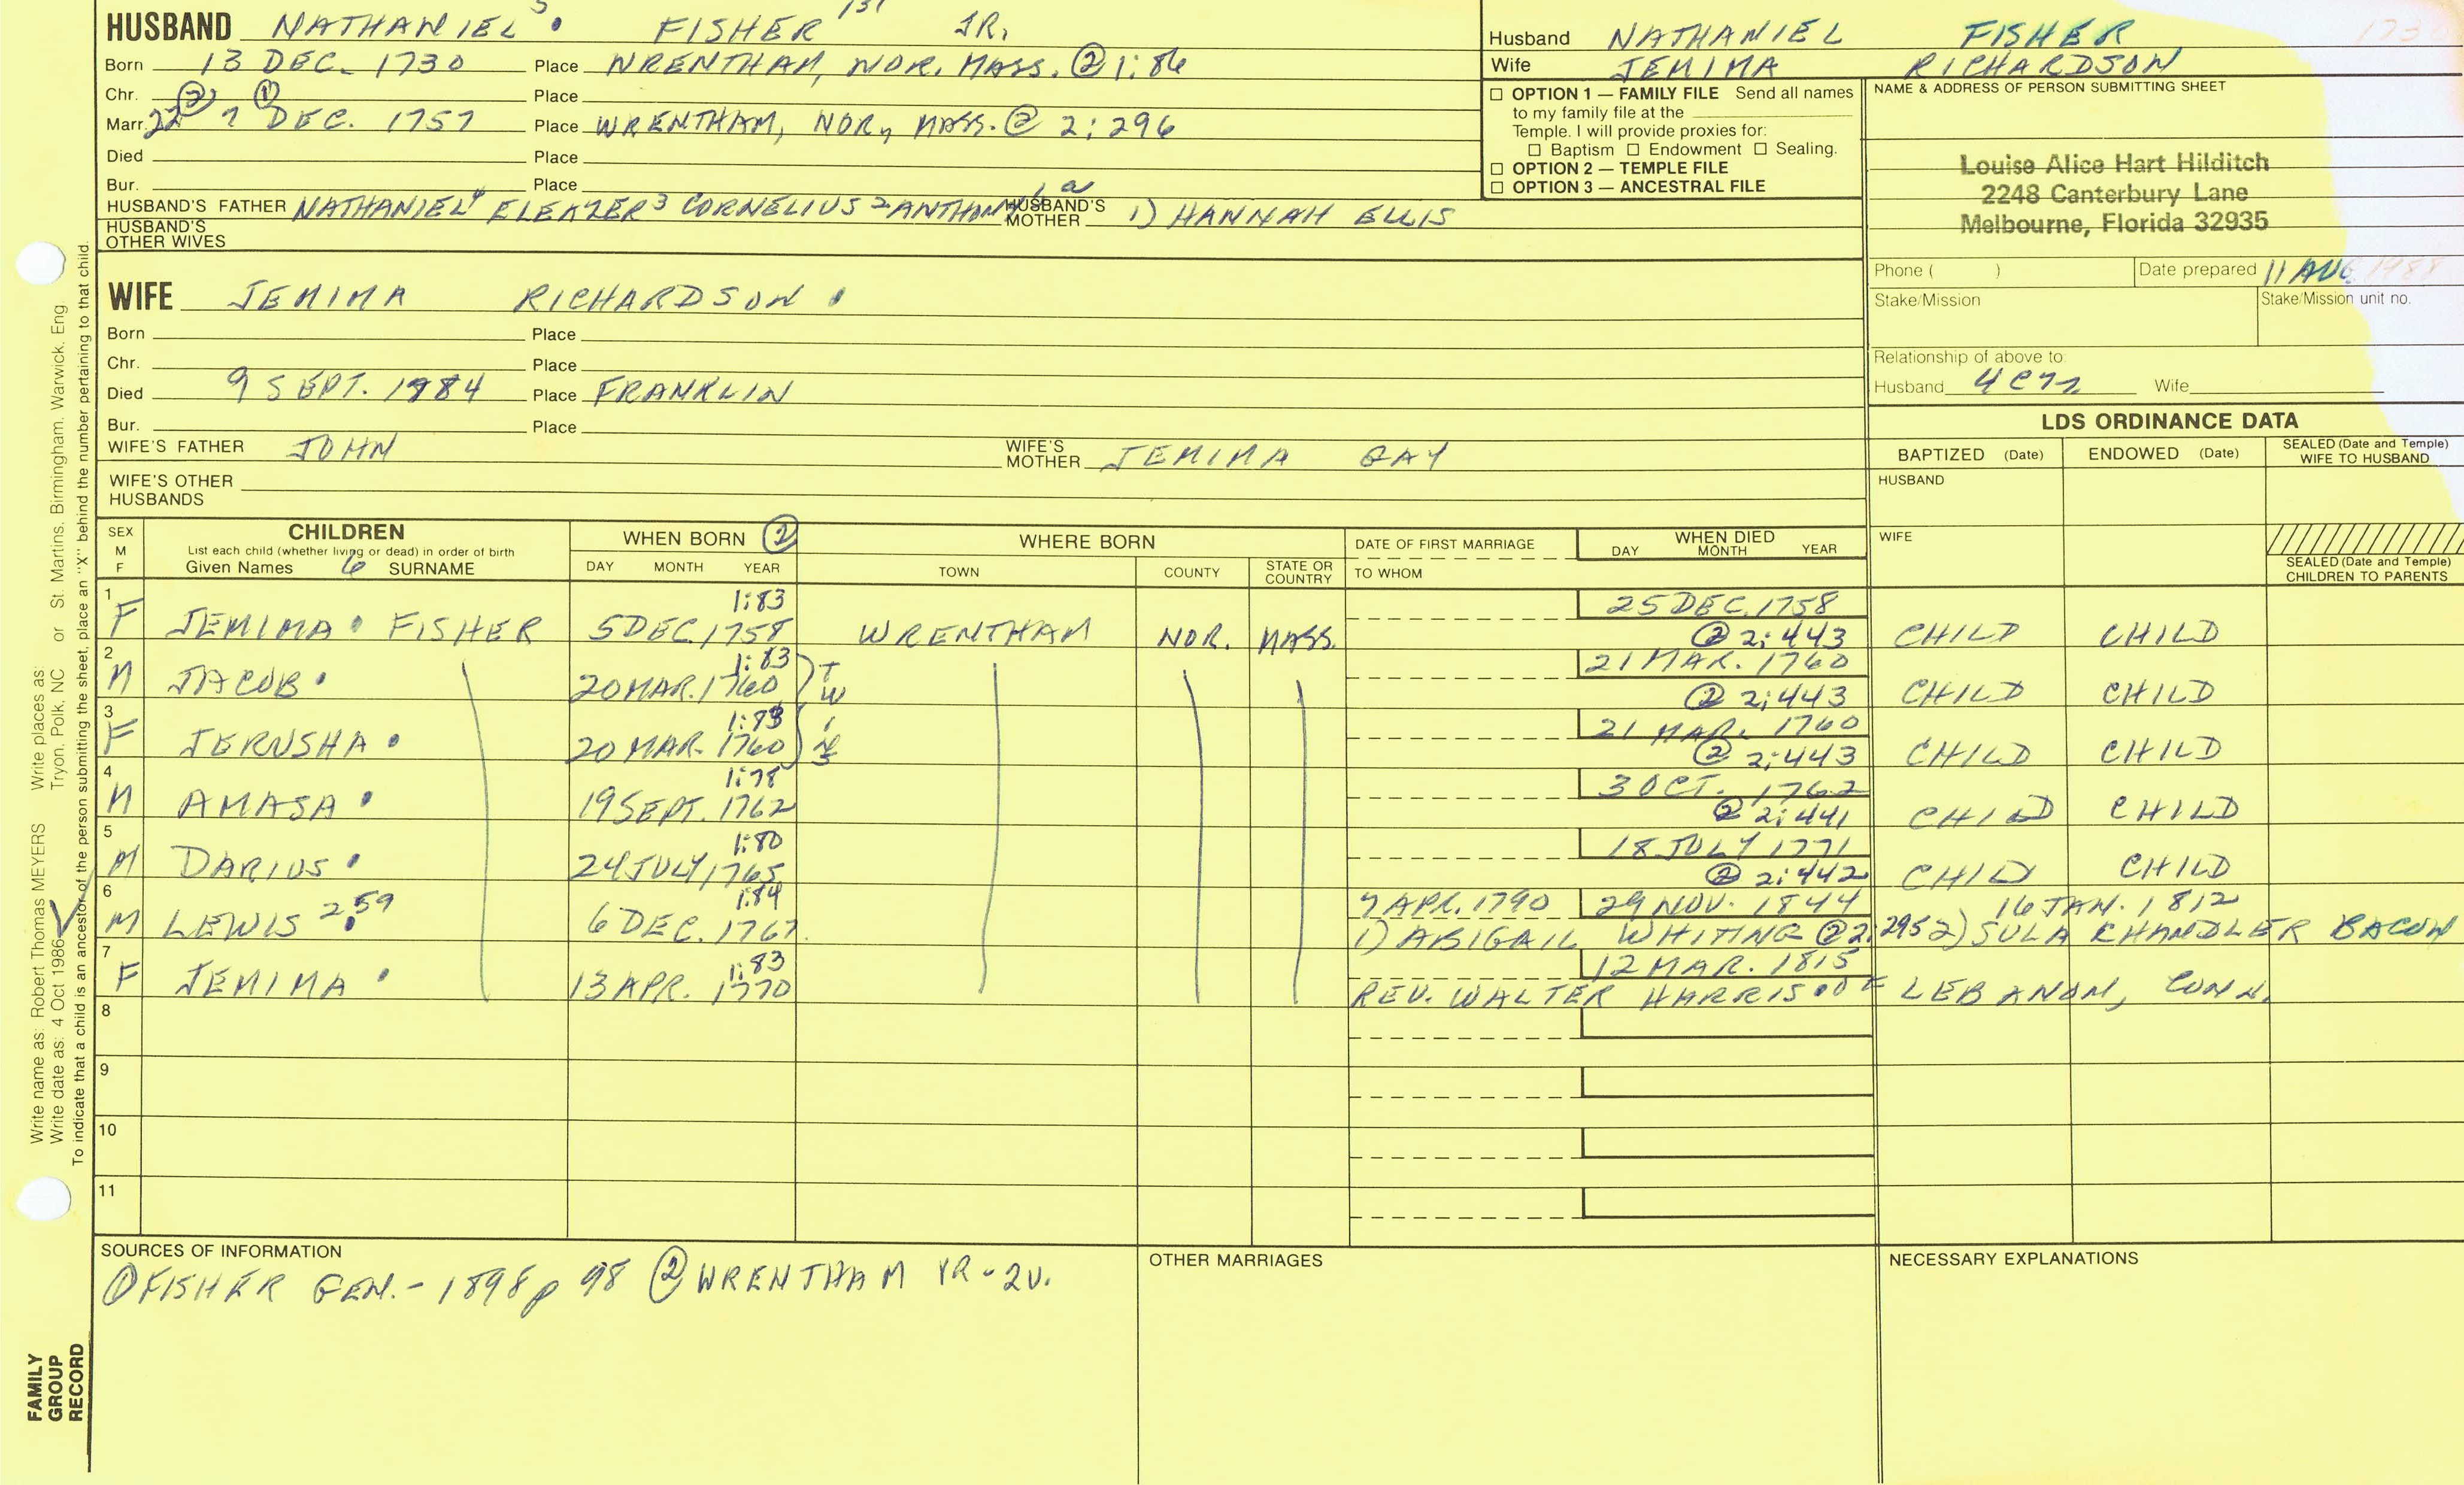 HUSBAND NATHANIEL 5 FISHER 131 JR.
Born 13 DEC. 1730 Place WRENTHAM, NOR. MASS. ② 1:86
Chr. ② ① Place
Marr. 22 7 DEC. 1757 Place WRENTHAM, NOR., MASS. ② 2:296
Died Place
Bur. Place
HUSBAND'S FATHER NATHANIEL 4 ELEAZER 3 CORNELIUS 2 ANTHONY 1, a HUSBAND'S MOTHER 1) HANNAH ELLIS
HUSBAND'S OTHER WIVES
Husband NATHANIEL FISHER
Wife JEMIMA RICHARDSON
☐ OPTION 1 — FAMILY FILE Send all names
to my family file at the
Temple. I will provide proxies for:
☐ Baptism ☐ Endowment ☐ Sealing.
☐ OPTION 2 — TEMPLE FILE
☐ OPTION 3 — ANCESTRAL FILE
NAME & ADDRESS OF PERSON SUBMITTING SHEET
Louise Alice Hart Hilditch
2248 Canterbury Lane
Melbourne, Florida 32935
Phone ( ) Date prepared 11 AUG. 1988
Stake/Mission Stake/Mission unit no.
Relationship of above to:
Husband Wife
WIFE JEMIMA RICHARDSON
Born Place
Chr. Place
Died 9 SEPT. 1984 Place FRANKLIN
Bur. Place
WIFE'S FATHER JOHN WIFE'S MOTHER JEMIMA GAY
WIFE'S OTHER HUSBANDS
LDS ORDINANCE DATA
BAPTIZED (Date) ENDOWED (Date) SEALED (Date and Temple) WIFE TO HUSBAND
HUSBAND
WIFE
SEALED (Date and Temple) CHILDREN TO PARENTS
SEX M F CHILDREN WHEN BORN ② WHERE BORN DATE OF FIRST MARRIAGE WHEN DIED
List each child (whether living or dead) in order of birth
Given Names 6 SURNAME DAY MONTH YEAR TOWN COUNTY STATE OR COUNTRY TO WHOM DAY MONTH YEAR
1 1:83 25 DEC. 1758
F JEMIMA FISHER 5 DEC. 1758 WRENTHAM NOR. MASS. ② 2:443 CHILD CHILD
2 1:83 21 MAR. 1760
M JACOB 20 MAR. 1760 TWINS ② 2:443 CHILD CHILD
3 1:83 21 MAR. 1760
F JERUSHA 20 MAR. 1760 ② 2:443 CHILD CHILD
4 1:78 3 OCT. 1762
M AMASA 19 SEPT. 1762 ② 2:441 CHILD CHILD
5 1:80 18 JULY 1771
M DARIUS 24 JULY 1765 ② 2:442 CHILD CHILD
6 1:84 7 APR. 1790 29 NOV. 1844 16 JAN. 1812
M LEWIS 259 6 DEC. 1767 1) ABIGAIL WHITING ② 2:295 2) SULA CHANDLER BACON
7 1:83 12 MAR. 1815
F JEMIMA 13 APR. 1770 REV. WALTER HARRIS OF LEBANON, CONN.
8
9
10
11
SOURCES OF INFORMATION
① FISHER GEN. - 1898 p 98 ② WRENTHAM VR - 2V.
OTHER MARRIAGES
NECESSARY EXPLANATIONS
Write name as: Robert Thomas MEYERS Write places as: Tryon, Polk, NC or St. Martins, Birmingham, Warwick, Eng
Write date as: 4 Oct 1986
To indicate that a child is an ancestor of the person submitting the sheet, place an "X" behind the number pertaining to that child.
FAMILY
GROUP
RECORD